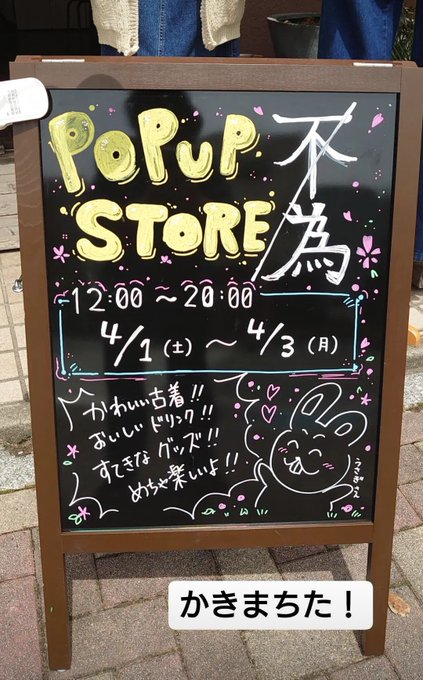 POPUP
STORE
不為
12:00 〜 20:00
4/1 (土) 〜 4/3 (月)
かわいい古着!!
おいしいドリンク!!
すてきなグッズ!!
めちゃ楽しいよ!!
かきまちた！